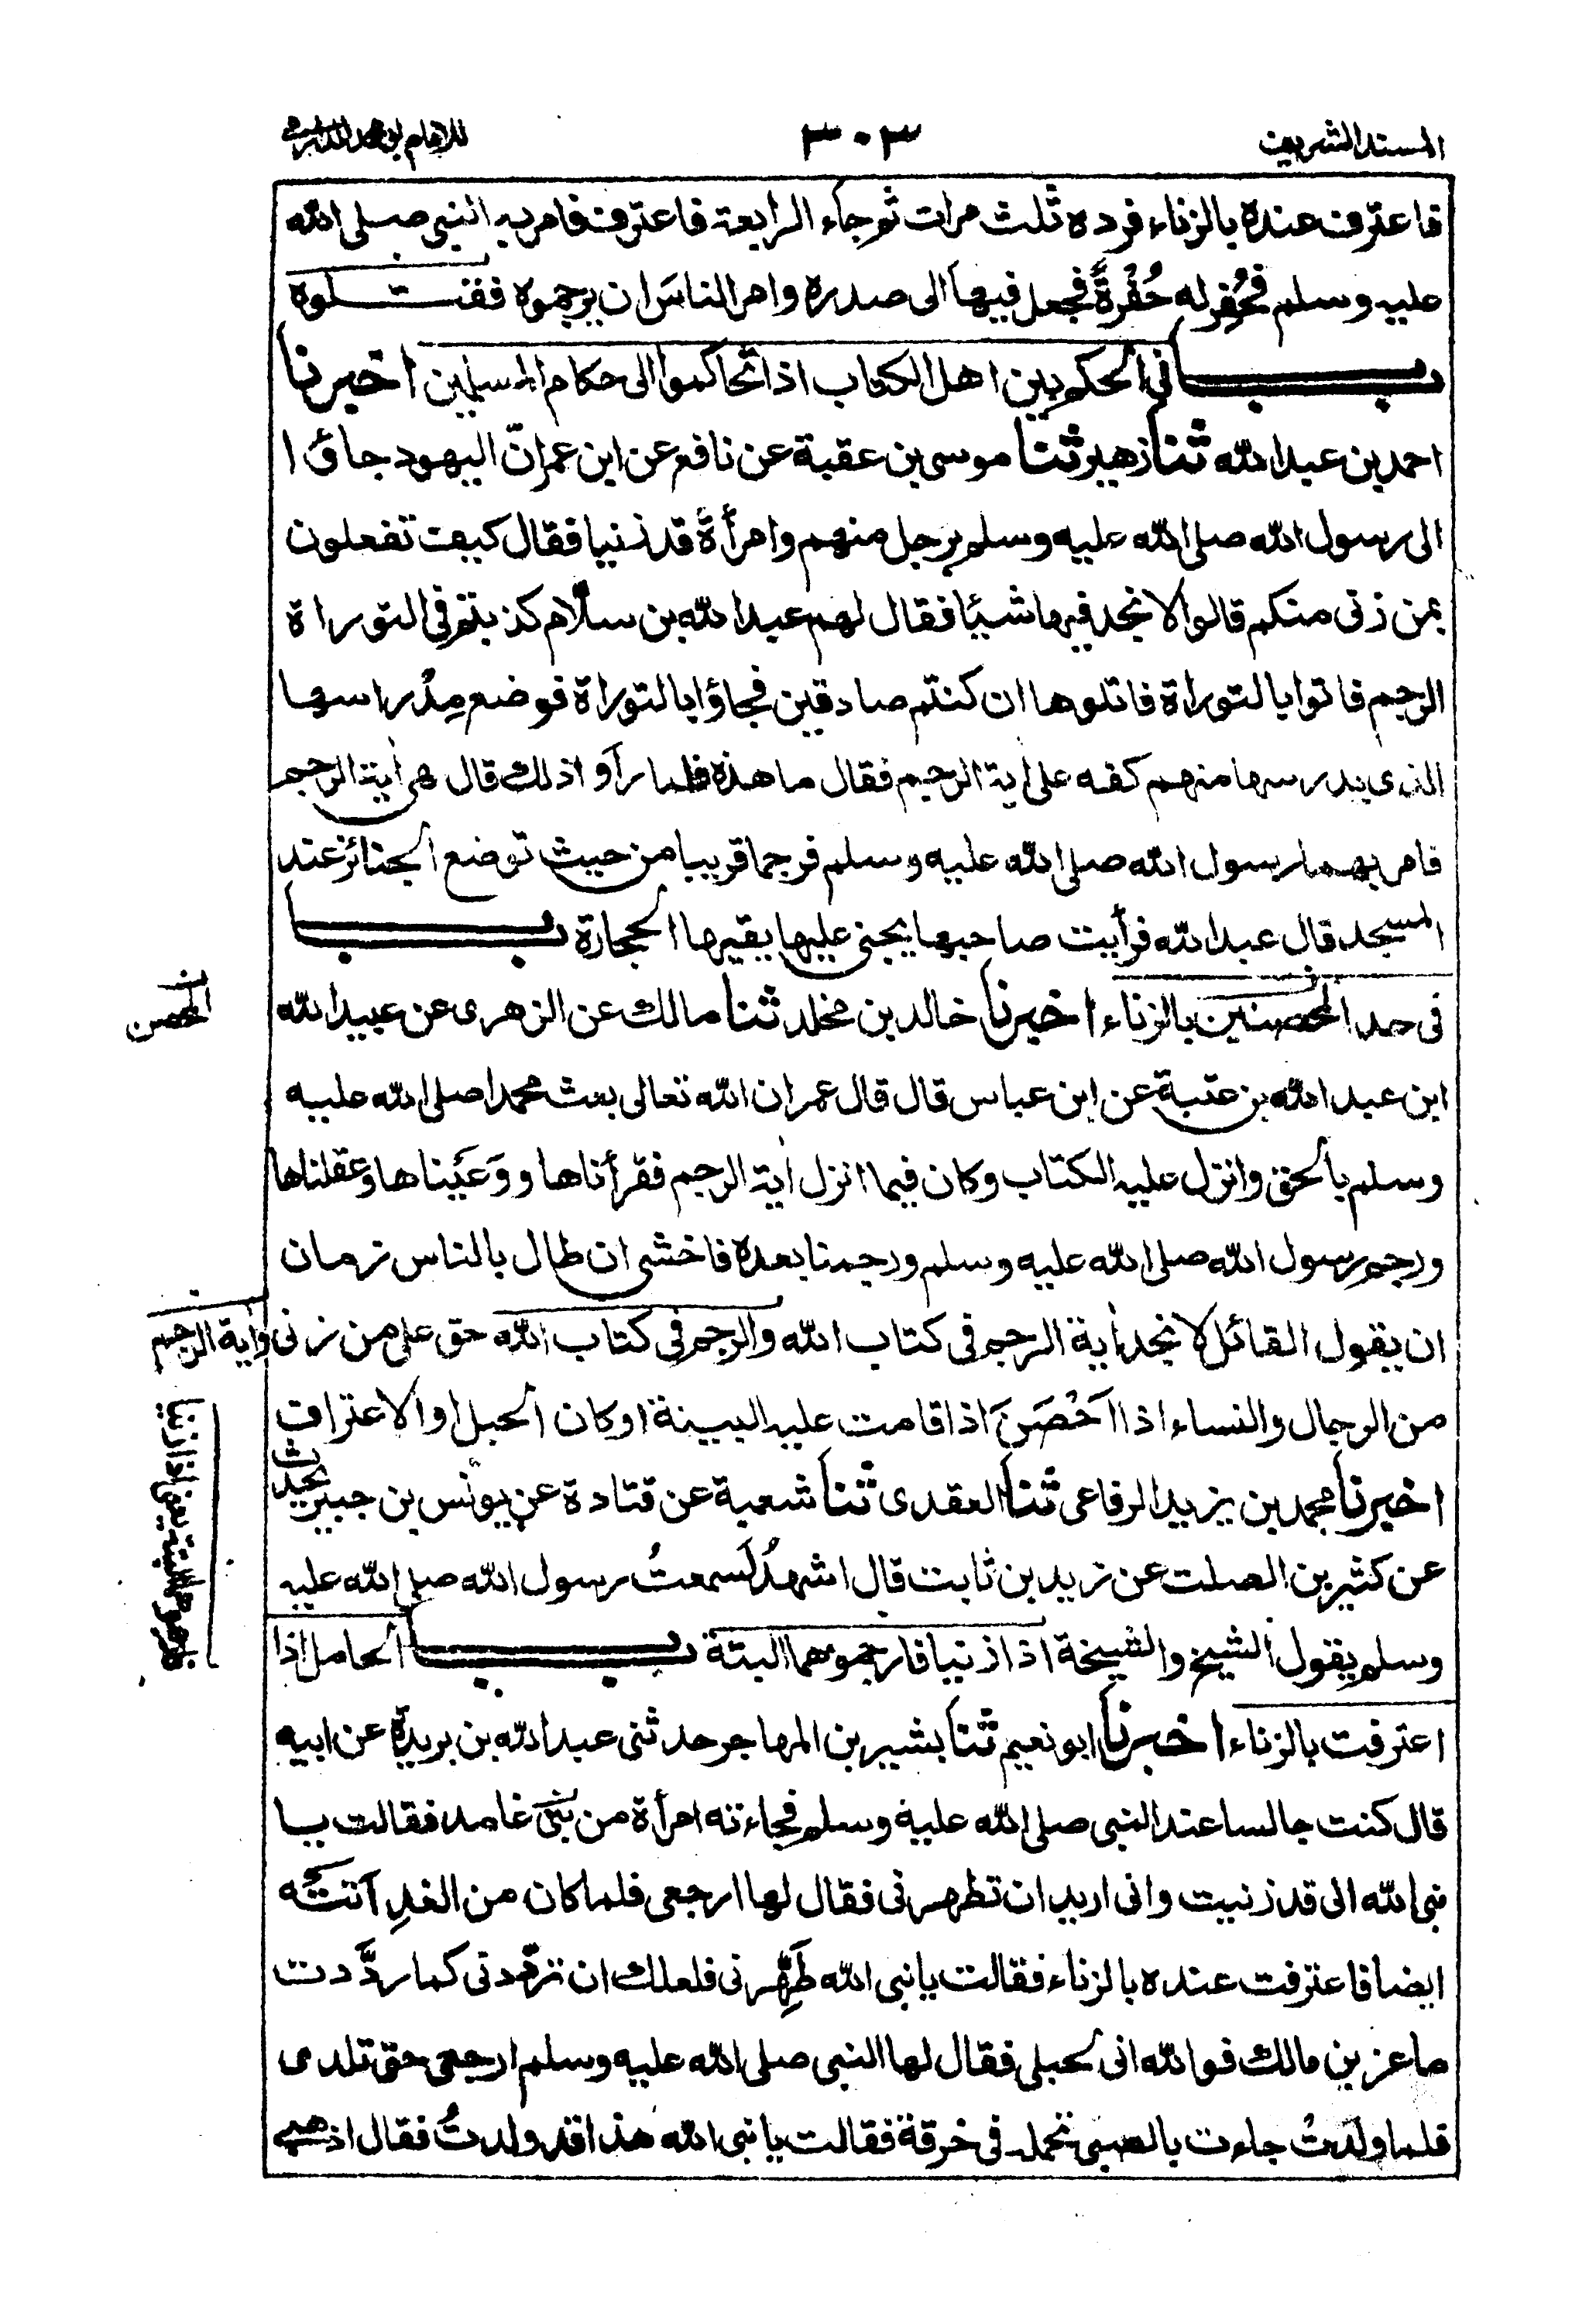 المسند الشريف
٣٠٣
للامام
فاعترف عنده بالزناء فرده ثلث مرات ثم جاء الرابعة فاعترف فامر به النبي صلى الله
عليه وسلم فحُفِر له حُفْرةً فجعل فيها الى صدره وامر الناسَ ان يرجموه فقتلوه
باب في الحكم بين اهل الكتاب اذا تحاكموا الى حكام المسلمين اخبرنا
احمد بن عبد الله ثنا زهير ثنا موسى بن عقبة عن نافع عن ابن عمر انّ اليهود جاؤا
الى رسول الله صلى الله عليه وسلم برجل منهم وامرأةً قد زنيا فقال كيف تفعلون
بمن زنى منكم قالوا لا نجد فيها شيئا فقال لهم عبد الله بن سلّام كذبتم في التوراة
الرجم فاتوا بالتوراة فاتلوها ان كنتم صادقين فجاؤا بالتوراة فوضع مِدْراسها
الذى يدرسها منهم كفه على اية الرجم فقال ما هذه فلما رأوا ذلك قال هى اية الرجم
فامر بهما رسول الله صلى الله عليه وسلم فرجما قريبا من حيث توضع الجنائز عند
المسجد قال عبد الله فرأيت صاحبها يجنى عليها يقيها الحجارة باب
في حد المحصنين بالزناء اخبرنا خالد بن مخلد ثنا مالك عن الزهرى عن عبيد الله
المحصن
ابن عبد الله بن عتبة عن ابن عباس قال قال عمر ان الله تعالى بعث محمدا صلى الله عليه
وسلم بالحق وانزل عليه الكتاب وكان فيما انزل اية الرجم فقرأناها ووَعَيناها وعقلناها
ورجم رسول الله صلى الله عليه وسلم ورجمنا بعده فاخشى ان طال بالناس زمان
ان يقول القائل لا نجد اية الرجم في كتاب الله والرجم في كتاب الله حق على من زنى
وأية الرجم
من الرجال والنساء اذا اَحْصَنَ اذا قامت عليه البينة او كان الحبل او الاعتراف
اخبرنا محمد بن يزيد الرفاعى ثنا العقدى ثنا شعبة عن قتادة عن يونس بن جبير يحدث
عن كثير بن الصلت عن زيد بن ثابت قال اشهدُ لَسمعتُ رسول الله صلى الله عليه
وسلم يقول الشيخ والشيخة اذا زنيا فارجموهما البتة باب الحامل اذا
اعترفت بالزناء اخبرنا ابو نعيم ثنا بشير بن المهاجر حدثنى عبد الله بن بريدة عن ابيه
قال كنت جالسا عند النبى صلى الله عليه وسلم فجاءته امرأة من بنى غامد فقالت يا
نبى الله انى قد زنيت وانى اريد ان تطهرنى فقال لها ارجعى فلما كان من الغدِ اَتَتْه
ايضا فاعترفت عنده بالزناء فقالت يا نبى الله طَهِّرنى فلعلك ان تردّدنى كما ردَّدت
ماعز بن مالك فوالله انى لحبلى فقال لها النبى صلى الله عليه وسلم ارجعى حتى تلدى
فلما ولدتْ جاءت بالصبى تحمله في خرقة فقالت يا نبى الله هذا قد ولدتُ فقال اذهبى